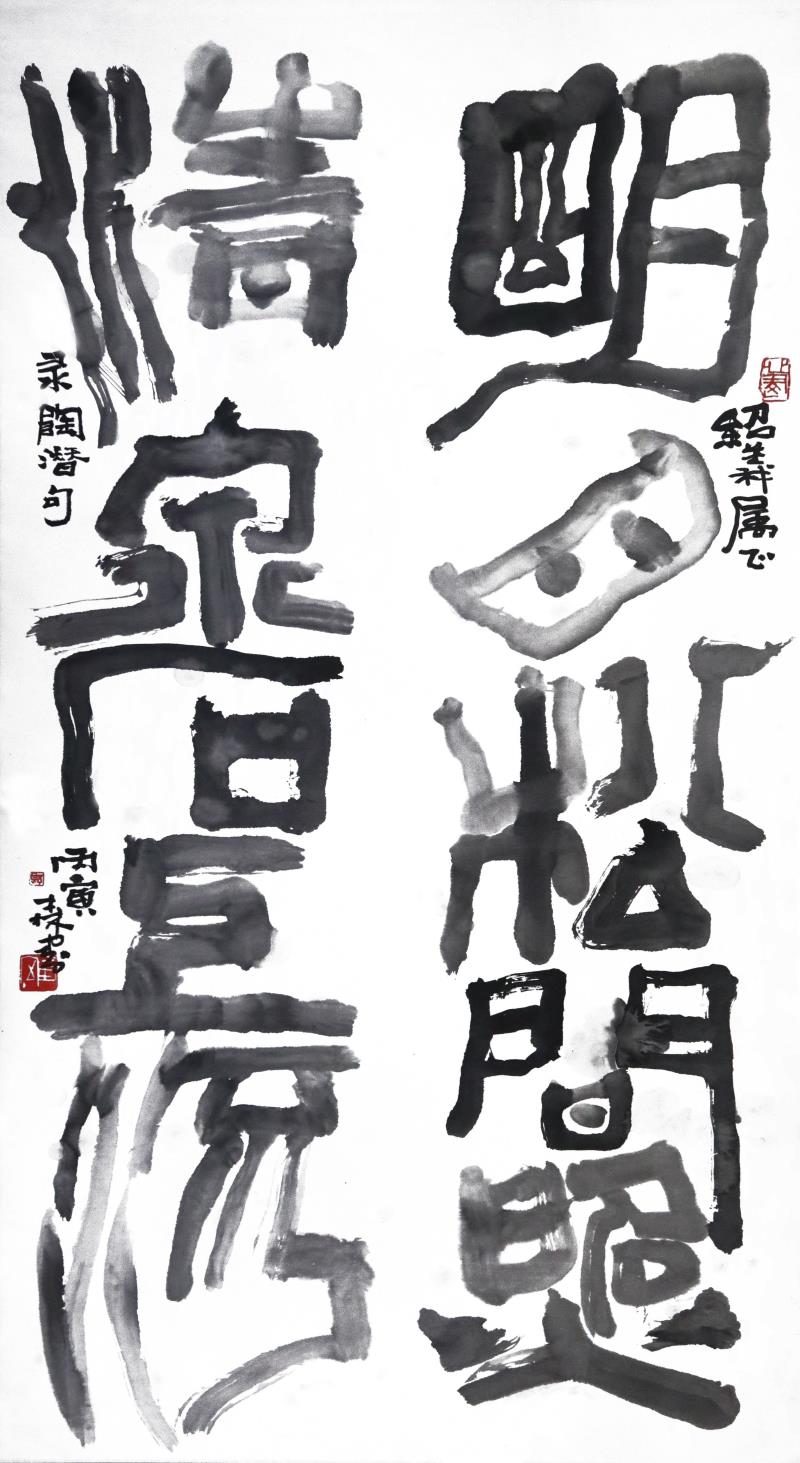 明月松間照
紹義属正
清泉石上流
录陶潜句
丙寅